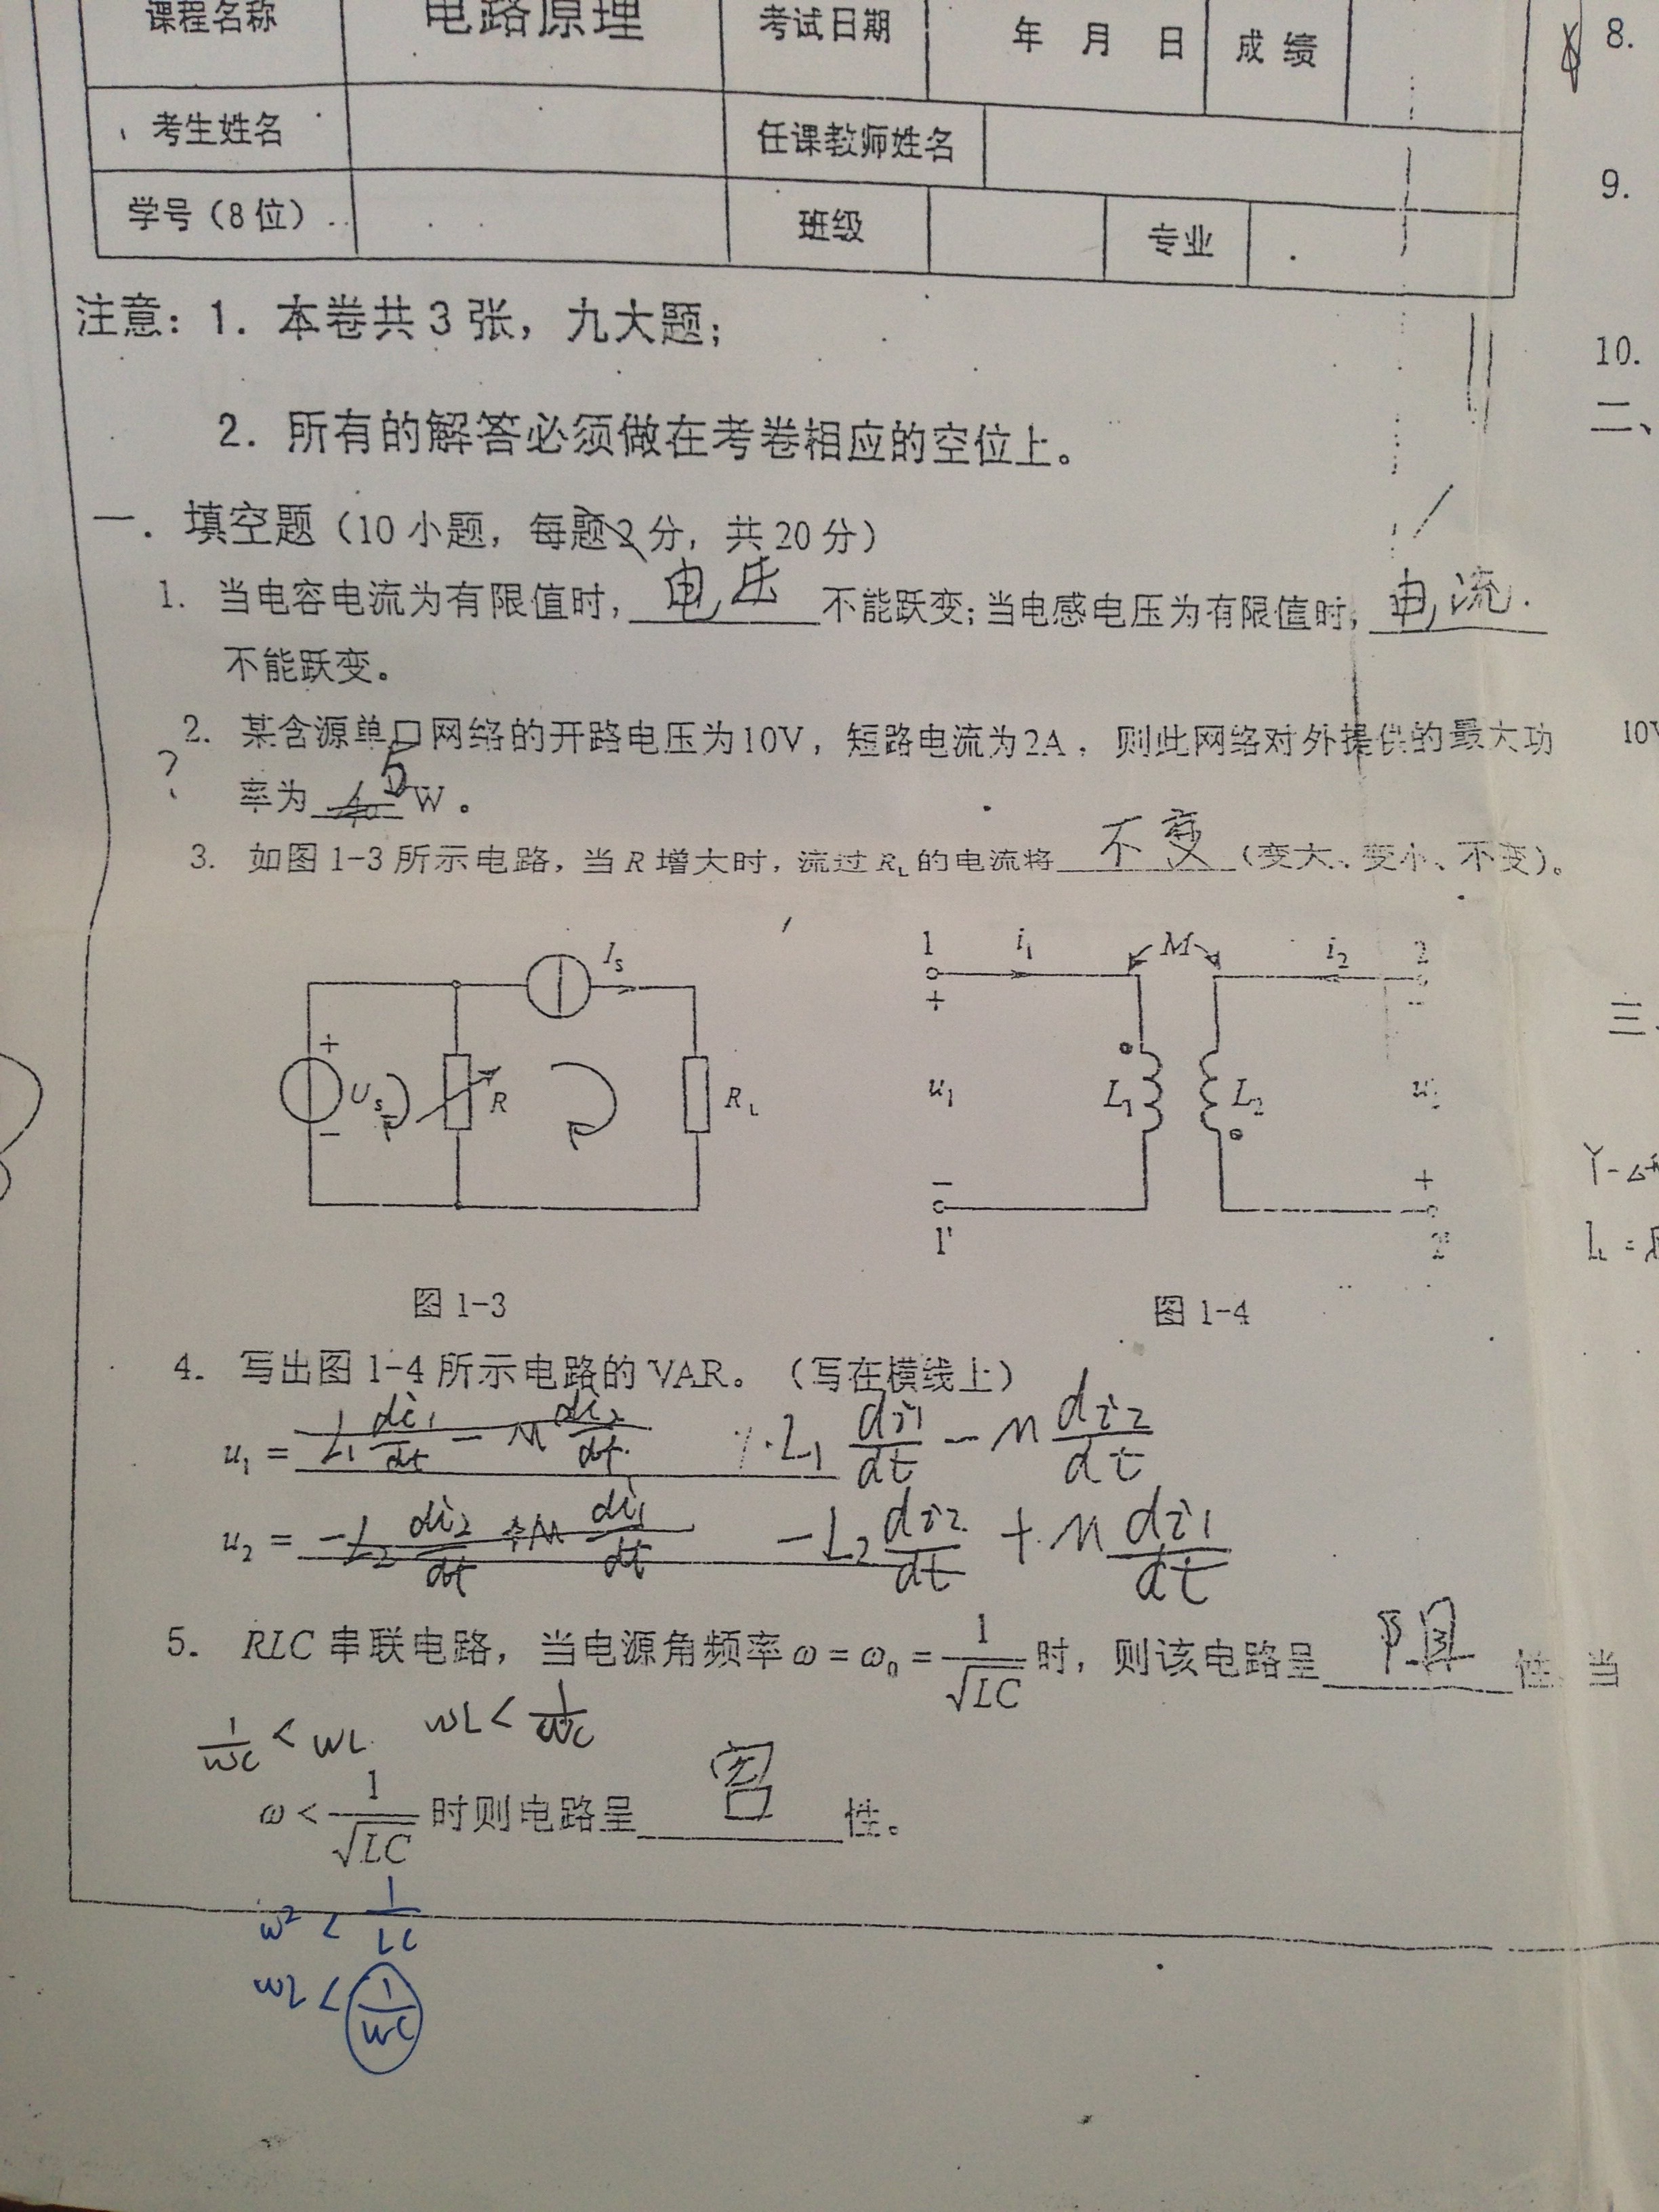 课程名称 电路原理 考试日期 年 月 日 成绩
考生姓名 任课教师姓名
学号（8位） 班级 专业
注意：1. 本卷共3张，九大题；
2. 所有的解答必须做在考卷相应的空位上。
一. 填空题（10小题，每题2分，共20分）
1. 当电容电流为有限值时，电压不能跃变；当电感电压为有限值时，电流.
不能跃变。
2. 某含源单口网络的开路电压为10V，短路电流为2A，则此网络对外提供的最大功
? 率为 5 W。
3. 如图1-3所示电路，当R增大时，流过R_L的电流将 不变 （变大、变小、不变）。
I_S
+ U_S - R R_L
1 i_1 M i_2 2
+ -
u_1 L_1 L_2
- +
1' 2'
图1-3 图1-4
4. 写出图1-4所示电路的VAR。（写在横线上）
u_1 = L_1 di_1/dt - M di_2/dt L_1 di_1/dt - M di_2/dt
u_2 = -L_2 di_2/dt + M di_1/dt -L_2 di_2/dt + M di_1/dt
5. RLC串联电路，当电源角频率ω=ω_0=1/√LC时，则该电路呈 阻 性，当
1/wc < wL wL < 1/wc
ω<1/√LC时则电路呈 容 性。
w² < 1/LC
wL < 1/wc
8.
9.
10.
二、
10V
三、
Y-△